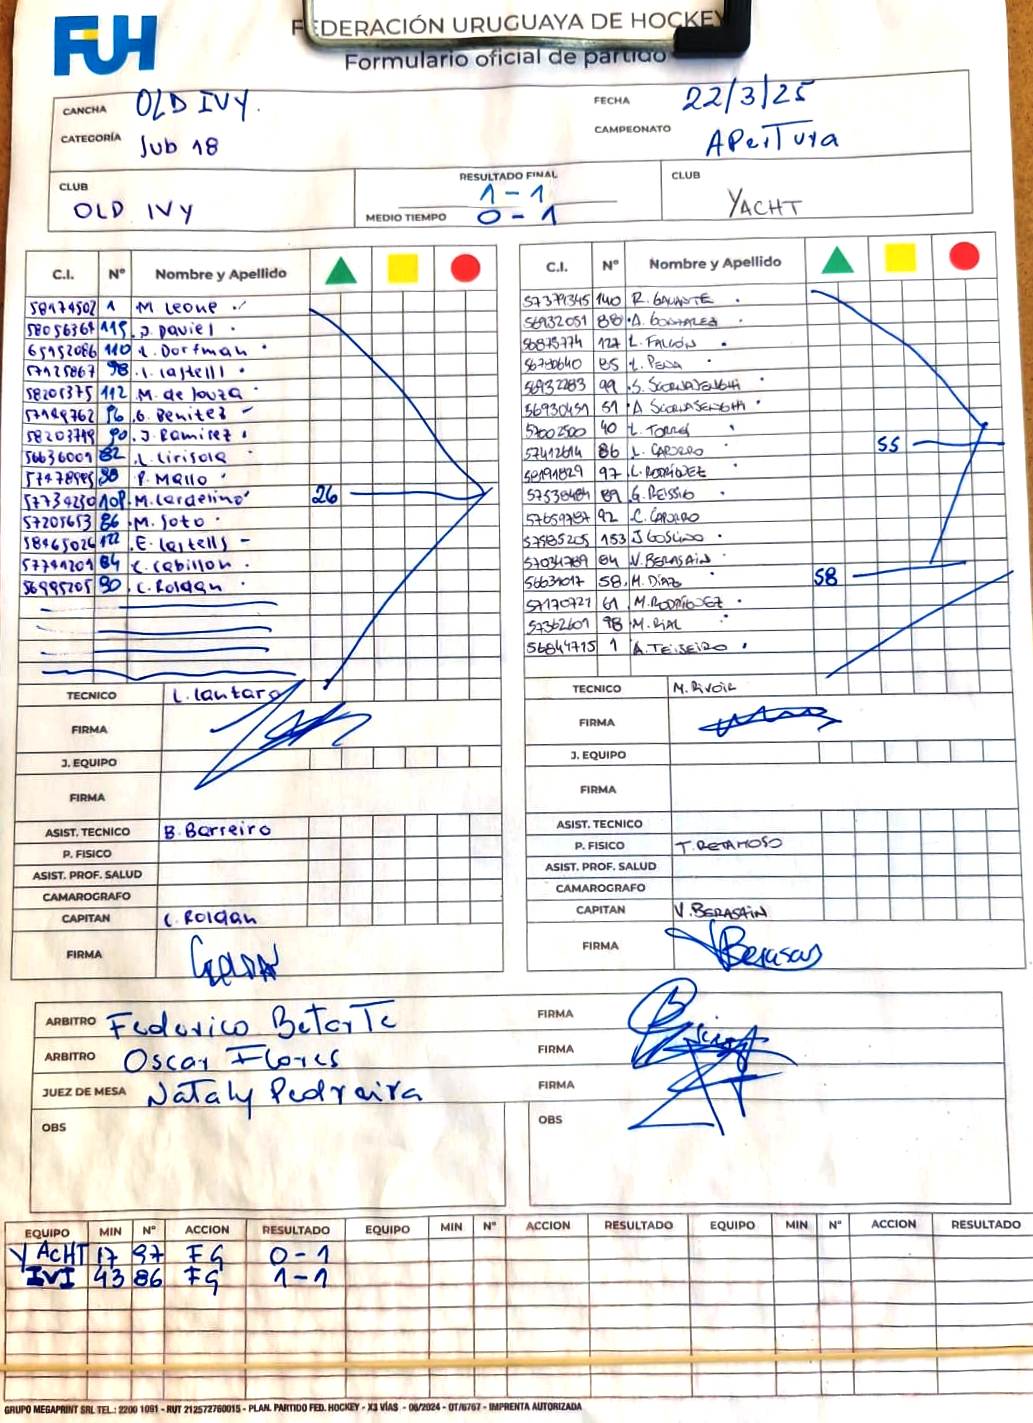 FUH
FEDERACIÓN URUGUAYA DE HOCKEY
Formulario oficial de partido
CANCHA OLD IVY. FECHA 22/3/25
CATEGORÍA Sub 18 CAMPEONATO APerTura
CLUB OLD IVY RESULTADO FINAL 1-1 CLUB YACHT
MEDIO TIEMPO 0-1
C.I. Nº Nombre y Apellido
58174502 1 M Leone
58056367 115 J. Daviel
65152086 110 L. Dorfman
57125867 98 I. Castelli
58201375 112 M. de Souza
57189762 96 G. Benitez
58203719 90 J. Ramirez
56636001 82 L. Cirisola
P. Mallo
57734230 108 M. Cardelino 26
57205653 86 M. Soto
58165026 122 E. Castells
57741201 84 C. Cabillon
56995205 90 C. Roldan
TECNICO L. Cantaro
FIRMA
J. EQUIPO
FIRMA
ASIST. TECNICO B. Barreiro
P. FISICO
ASIST. PROF. SALUD
CAMAROGRAFO
CAPITAN C. Roldan
FIRMA
C.I. Nº Nombre y Apellido
57379345 140 R. GALANTE
56932051 88 A. GONZALEZ
56875774 127 L. FALCÓN
56780640 85 L. PENA
56932283 99 S. SCORNASENGHI
56930451 51 A SCORNASENGHI
57002500 40 L. TORRES
57412614 86 L. CAPURRO 55
58191829 97 L. RODRÍGUEZ
57538484 89 G. REISSIG
57659787 92 C. CAPURRO
57585205 153 J GOSLINO
57034789 84 V. BERASAIN
56631017 58 M. DIAZ 58
57170721 61 M. RODRÍGUEZ
57362601 98 M. RIAL
56847715 1 A. TEISEIRO
TECNICO M. Rivoir
FIRMA
J. EQUIPO
FIRMA
ASIST. TECNICO
P. FISICO T. RETAMOSO
ASIST. PROF. SALUD
CAMAROGRAFO
CAPITAN V. BERASAIN
FIRMA V Berasain
ARBITRO Federico BetarTe FIRMA
ARBITRO Oscar Flores FIRMA
JUEZ DE MESA Nataly Pedreira FIRMA
OBS OBS
EQUIPO MIN Nº ACCION RESULTADO EQUIPO MIN Nº ACCION RESULTADO EQUIPO MIN Nº ACCION RESULTADO
YACHT 17 97 FG 0-1
IVI 43 86 FG 1-1
GRUPO MEGAPRINT SRL TEL.: 2200 1091 - RUT 212572760015 - PLAN. PARTIDO FED. HOCKEY - X3 VÍAS - 06/2024 - OT/6767 - IMPRENTA AUTORIZADA